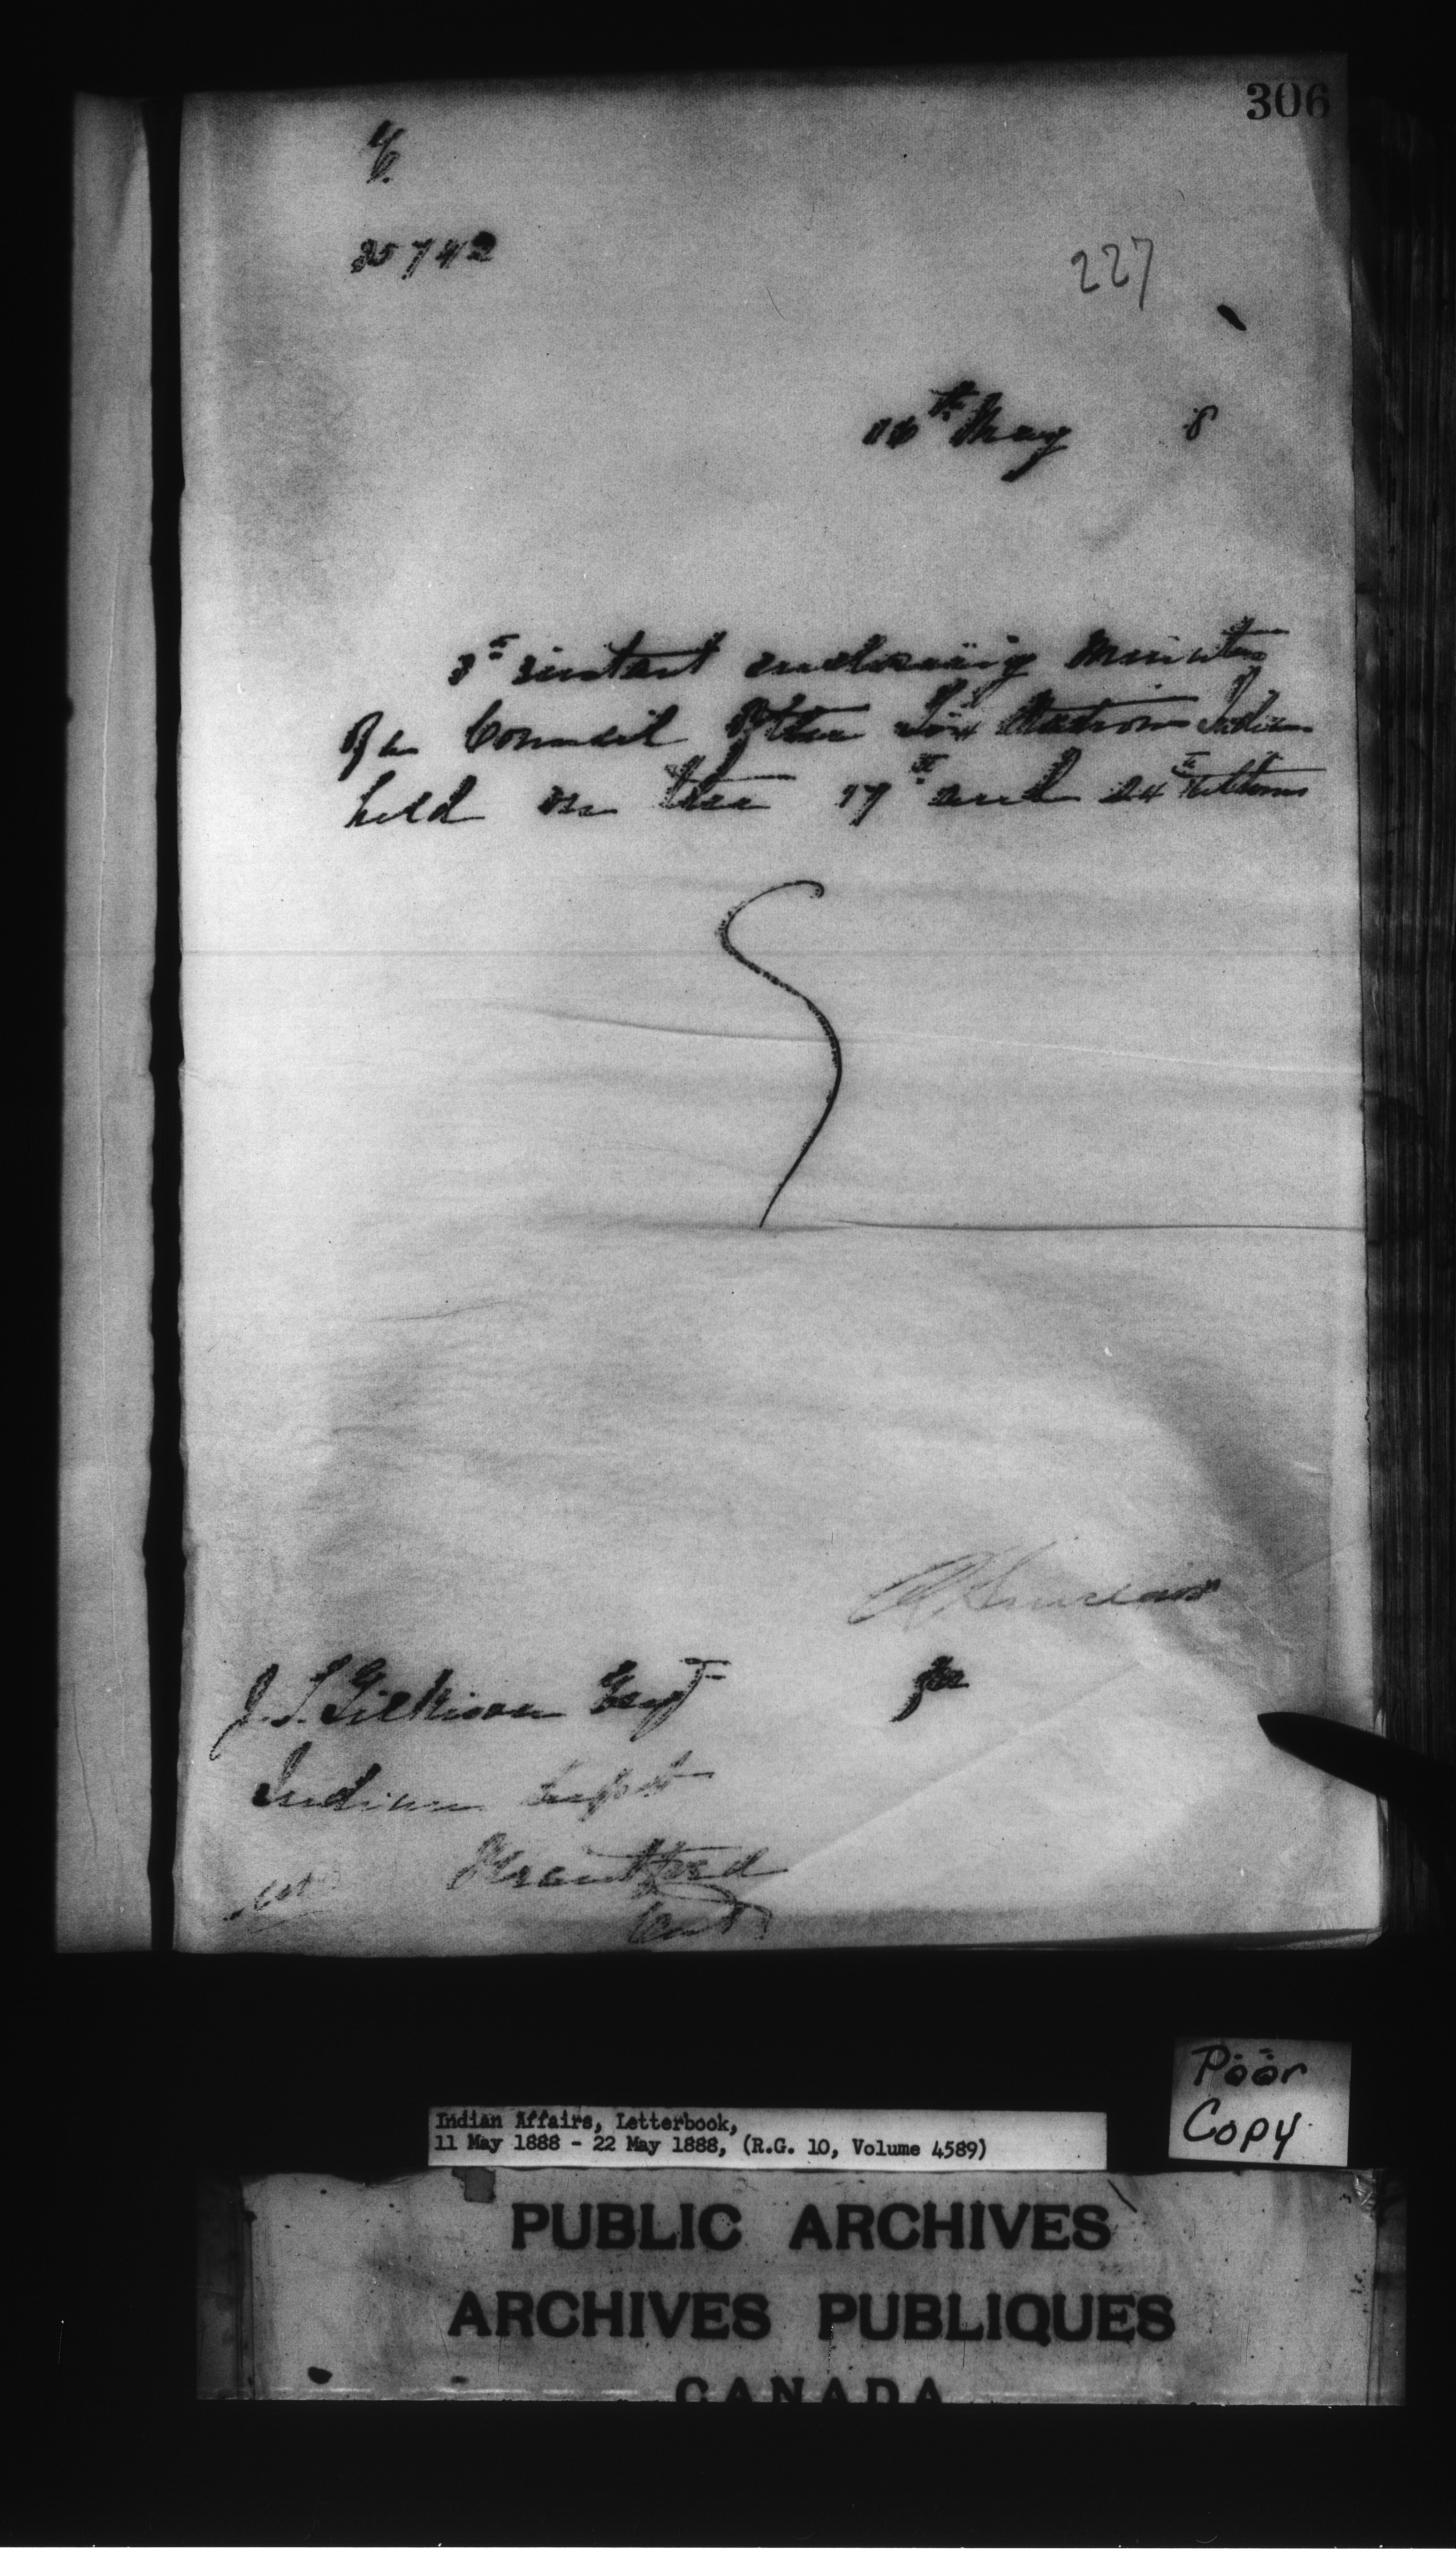 306
25742
227
16th May 8
3rd instant enclosing minutes
of a Council of the Six Nations Indians
held on the 17th and 24th Ultimo
for
J. T. Gilkison Esqr
Indian Supt
Brantford
Ont
Poor
Copy
Indian Affairs, Letterbook,
11 May 1888 - 22 May 1888, (R.G. 10, Volume 4589)
PUBLIC ARCHIVES
ARCHIVES PUBLIQUES
CANADA